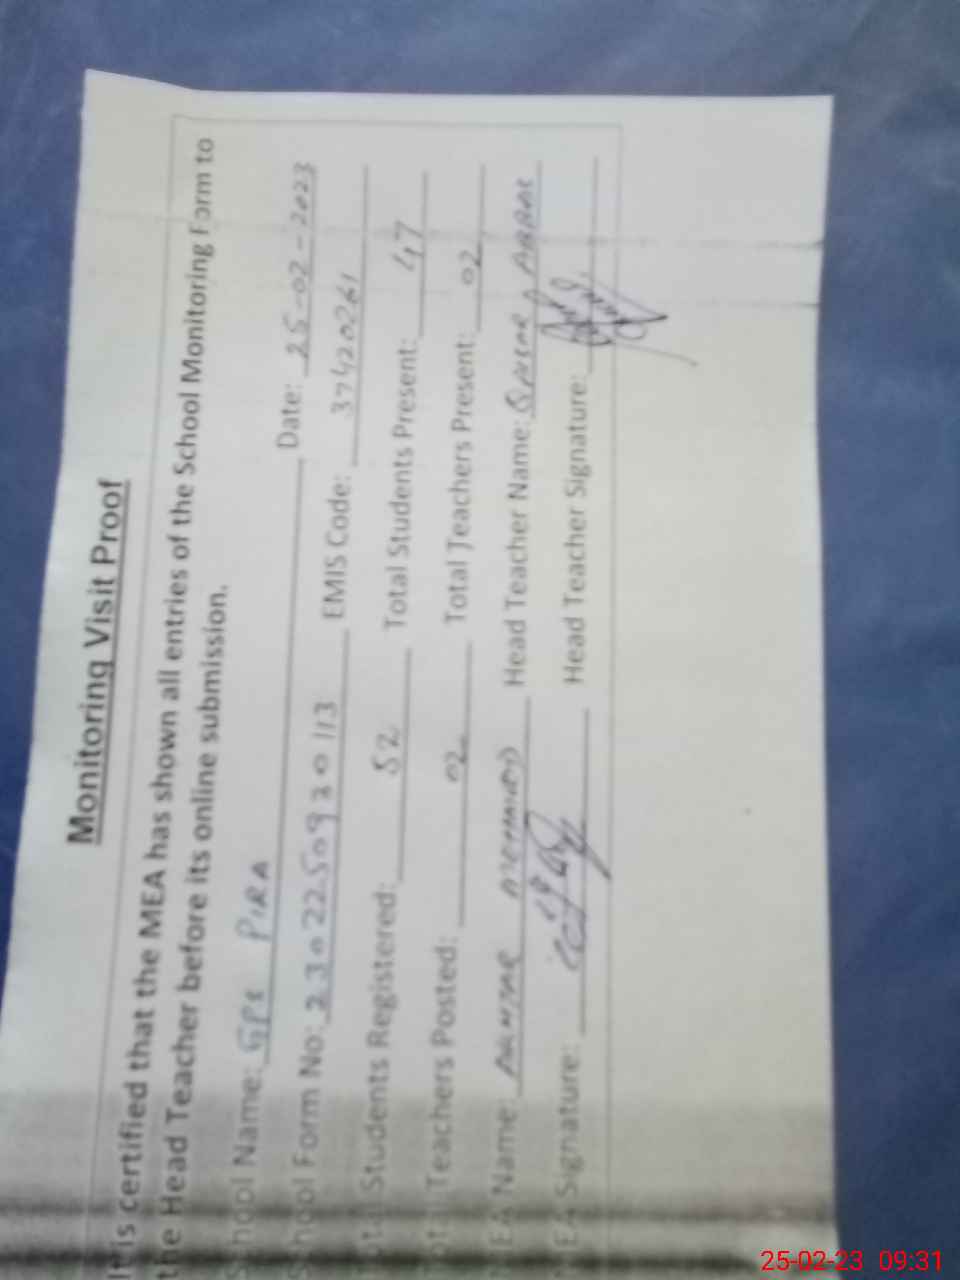 Monitoring Visit Proof
It is certified that the MEA has shown all entries of the School Monitoring Form to
the Head Teacher before its online submission.
School Name: GPS PIRA Date: 25-02-2023
School Form No: 23022509930113 EMIS Code: 37420261
Total Students Registered: 52 Total Students Present: 47
Total Teachers Posted: 02 Total Teachers Present: 02
MEA Name: MEHMOOD Head Teacher Name: ABBAS
MEA Signature: Head Teacher Signature:
25-02-23 09:31